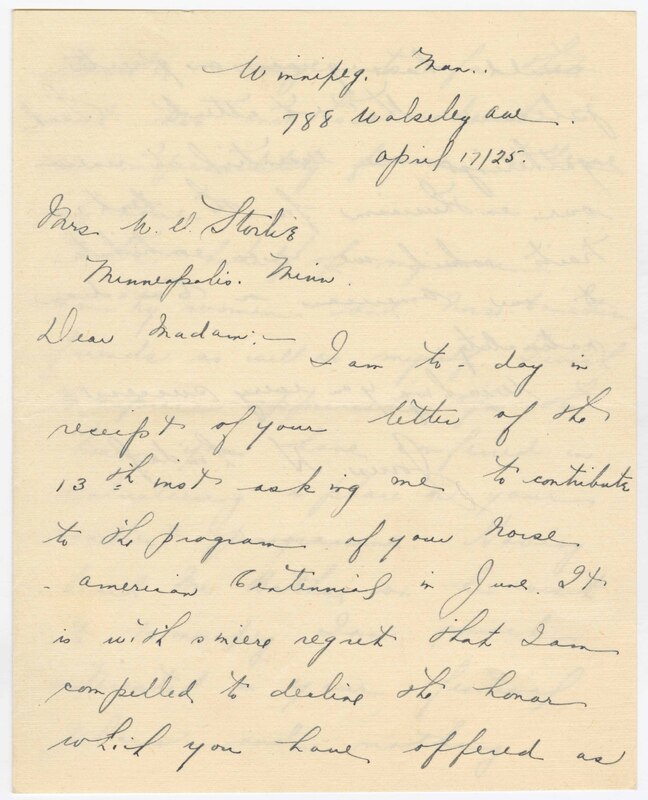 Winnipeg. Man..
788 Wolseley Ave.
April 17/25.
Mrs W. O. Storlie
Minneapolis. Minn.
Dear Madam:-
I am to-day in
receipt of your letter of the
13th inst asking me to contribute
to the program of your Norse
-American Centennial in June. It
is with sincere regret that I am
compelled to decline the honor
which you have offered as